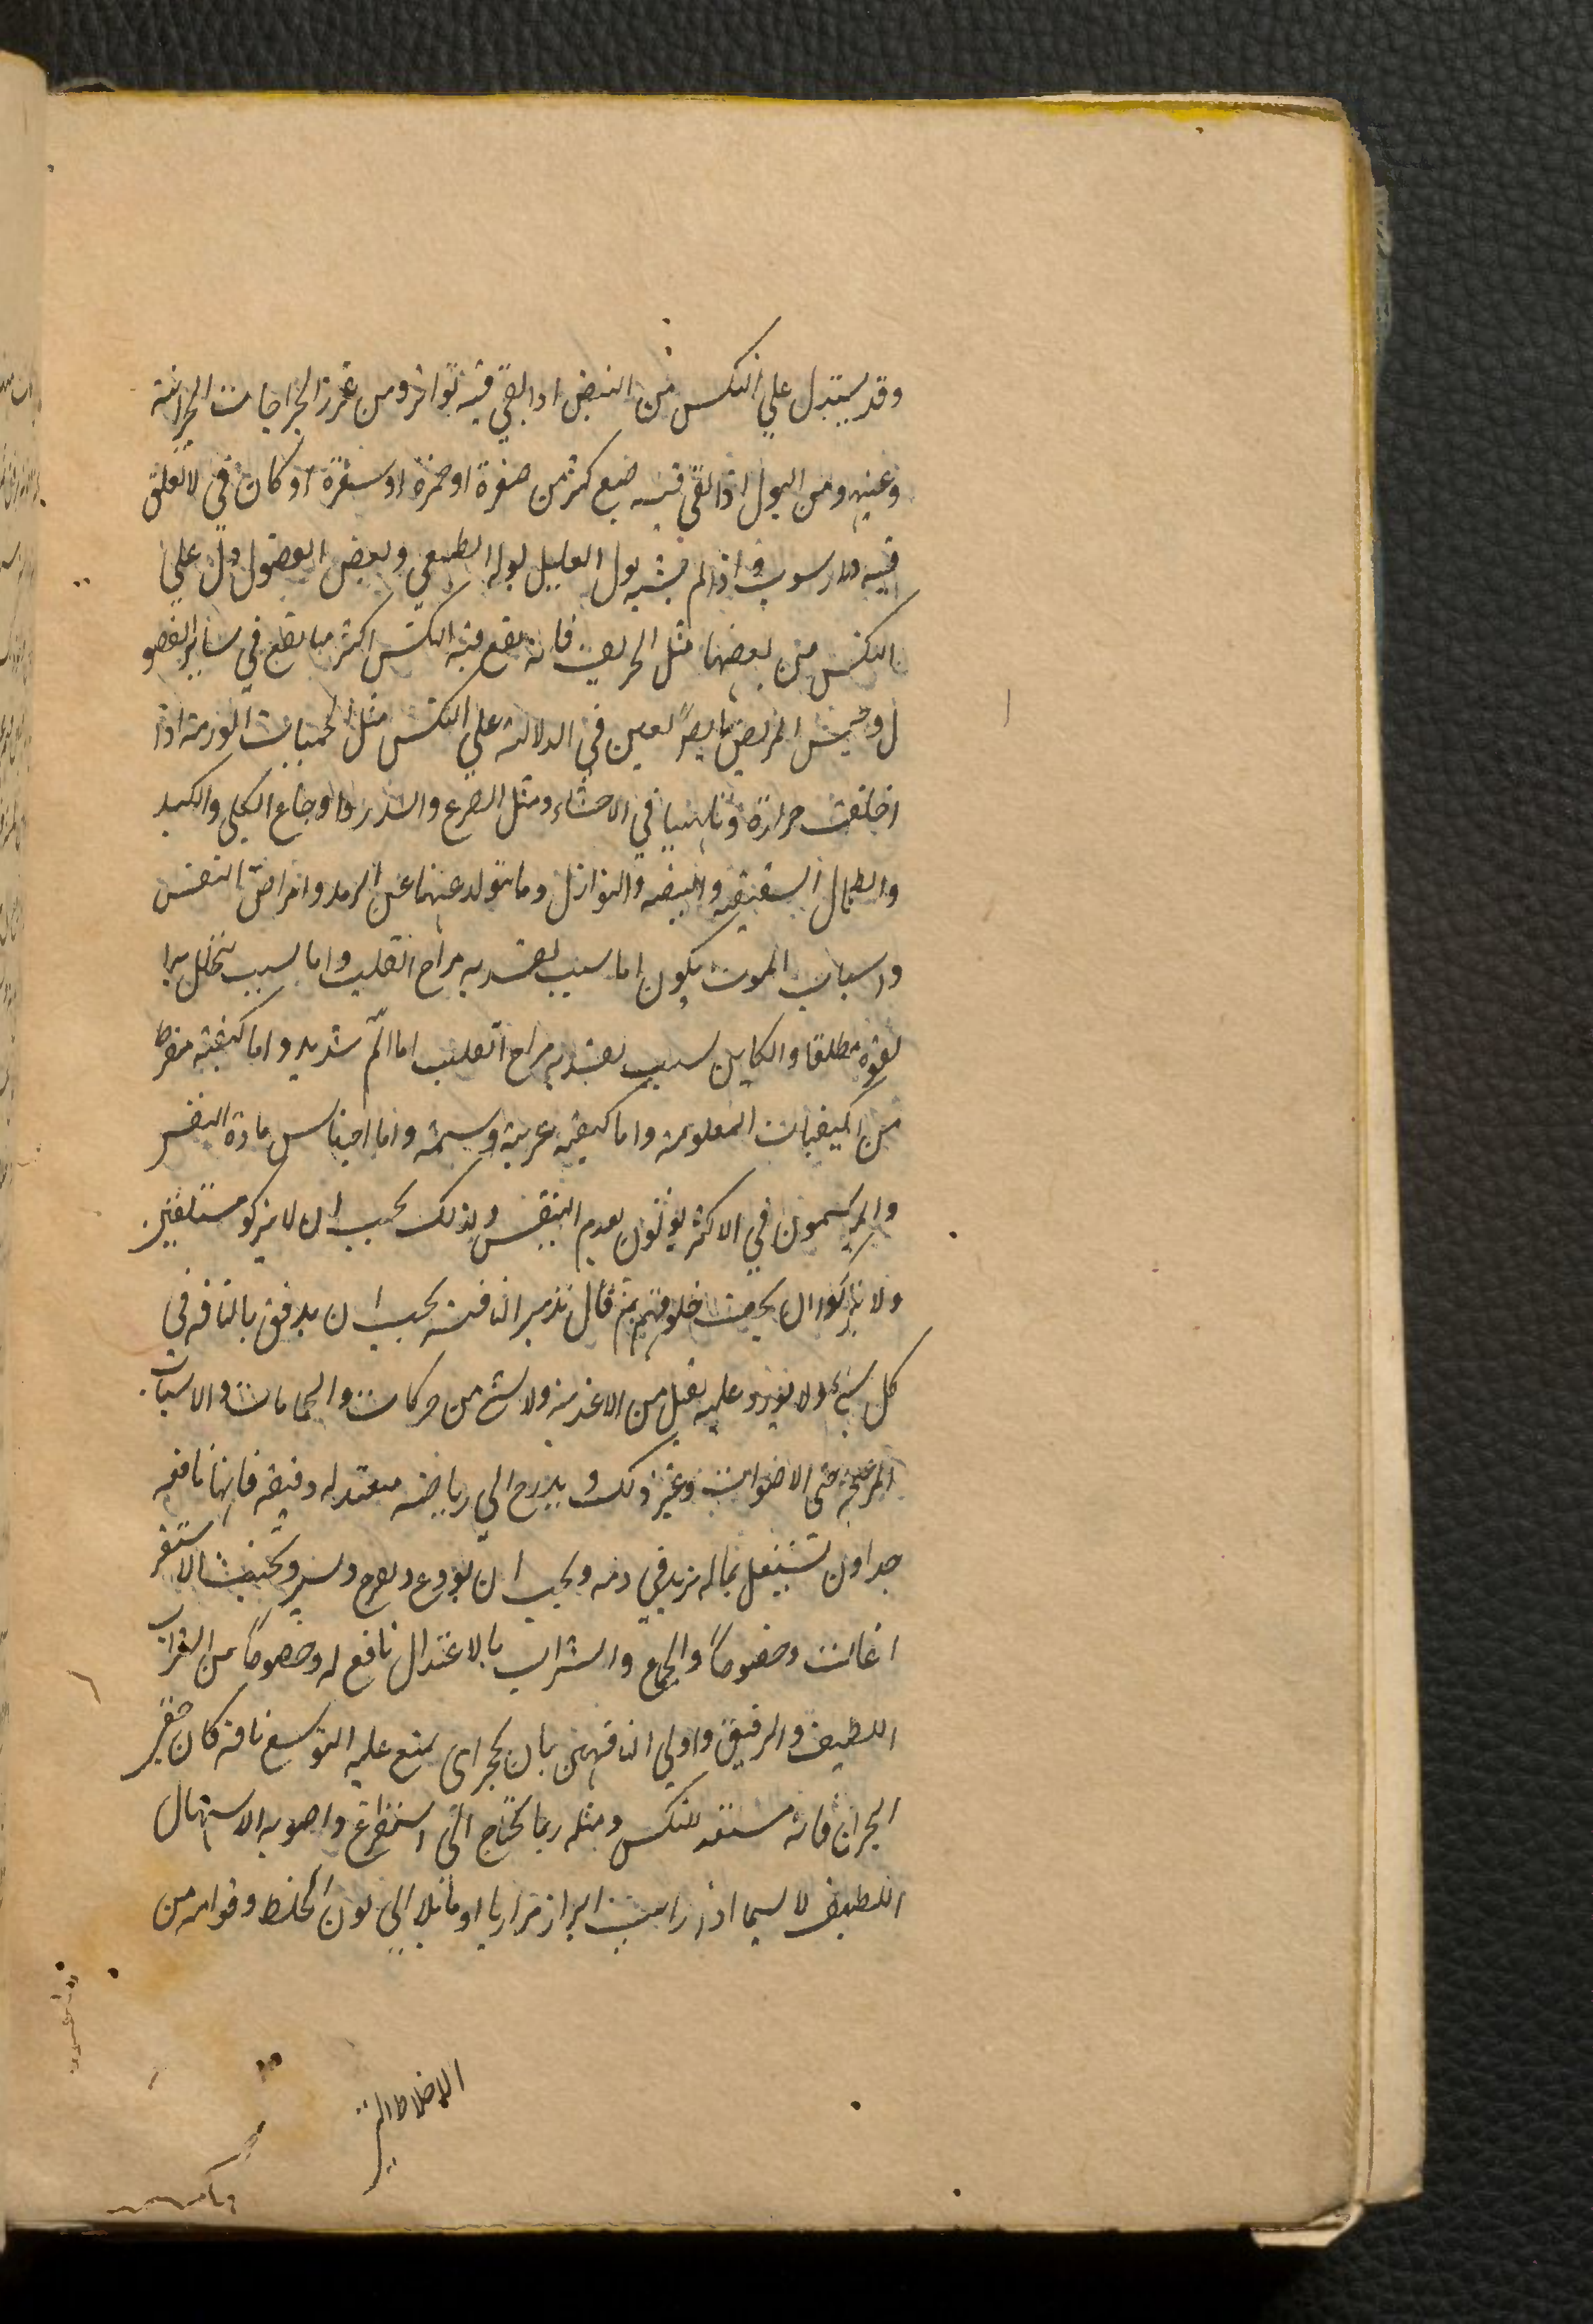 وقد يستدل على النكس من النبض اذا بقي فيه تواتر ومن غرز الخراجات الحراثية
وغيره ومن البول اذا بقي فيه صبع كثر من صفرة او حمرة او سفرة او كان في لا تعلق
فيه ولا رسوب واذا لم يشبه بول العليل بوله الطبيعي وبعض الفصول دل على
النكس من بعضها مثل الخريف فانه يقع فيه النكس اكثر مما يقع في سائر الفصو
ل وجنس المرض ايضاً يعين في الدلالة على النكس مثل الحميات الورمية اذا
اخلفت حرارة وتلهبا في الاحشاء ومثل الصرع والسدر واوجاع الكلى والكبد
والطحال الشقيقة والبيضه والنوازل وما يتولد عنها عن الرمد وامراض النفس
واسباب الموت يكون اما سبب يفسد به مزاج القلب واما سبب تحلل برا
لقوة مطلقا والكاين لسبب يفسد به مزاج القلب اما الم شديد واما كيفية مفرط
من الكيفيات المعلومة واما كيفية غريبة وسمية واما احتباس مادة النفس
والمبرسمون في الاكثر يموتون بعدم التنفس ولذلك يجب ان لا يتركو مستلقين
ولا يتركوا ان يجف حلوقهم ثم قال تدبير الناقه يجب ان يرفق بالناقه في
كل شيء ولا يورد عليه ثقيل من الاغذية ولا شيء من حركات والحمامات والاسباب
المزعجة حتى الاصوات وغير ذلك ويدرج الى رياضة معتدلة رفيقة فانها نافعه
جدا وان تشتغل بما له يزيد في دمه ويجب ان يودع ويفرح ويسر ويجنب الاستفر
اغات وخصوصاً والجماع والشراب بالاعتدال نافع له وخصوصاً من الشراب
اللطيف والرقيق واولى الناقهين بان يحجر اى يمنع عليه التوسع ناقه كان خفير
البحران فانه مستعد للنكس ومثله ربما يحتاج الى استفراغ واصوبه الاسهال
اللطيف لا سيما اذا رايت البراز مراريا او مايلا الى لون الخلط وقوامه من
الاخلاط التي